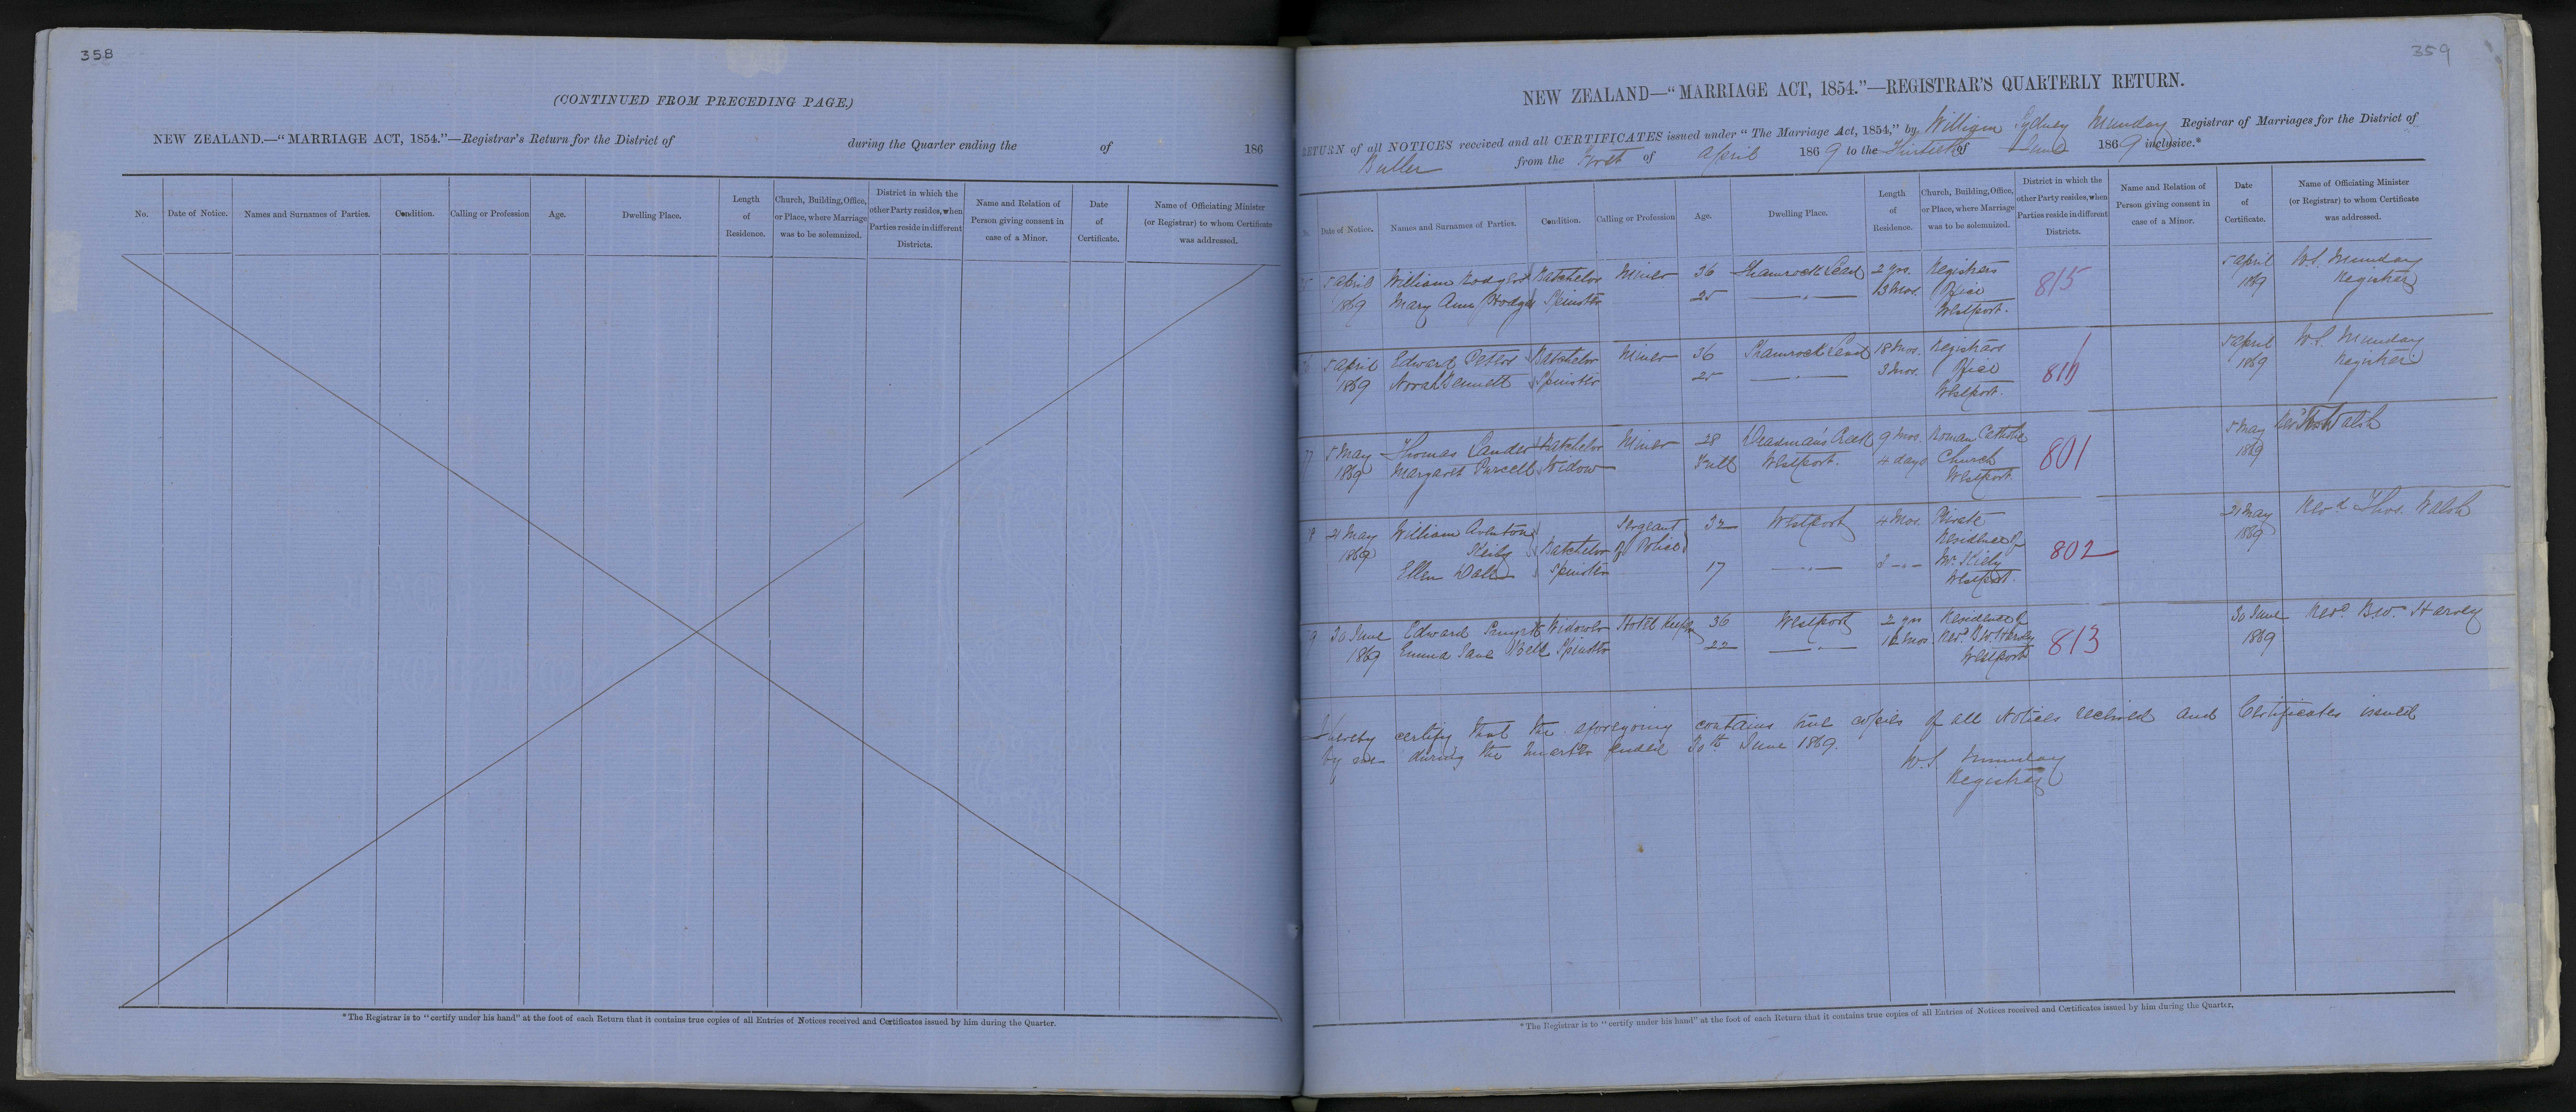 358
(CONTINUED FROM PRECEDING PAGE.)
NEW ZEALAND.—“MARRIAGE ACT, 1854.”—Registrar's Return for the District of during the Quarter ending the of 186
No. Date of Notice. Names and Surnames of Parties. Condition. Calling or Profession Age. Dwelling Place. Length of Residence. Church, Building, Office, or Place, where Marriage was to be solemnized. District in which the other Party resides, when Parties reside in different Districts. Name and Relation of Person giving consent in case of a Minor. Date of Certificate. Name of Officiating Minister (or Registrar) to whom Certificate was addressed.
*The Registrar is to “certify under his hand” at the foot of each Return that it contains true copies of all Entries of Notices received and Certificates issued by him during the Quarter.
359
NEW ZEALAND—“MARRIAGE ACT, 1854.”—REGISTRAR'S QUARTERLY RETURN.
RETURN of all NOTICES received and all CERTIFICATES issued under “The Marriage Act, 1854,” by William Sydney Munday Registrar of Marriages for the District of
Buller from the First of April 1869 to the Thirtieth of June 1869 inclusive.*
No. Date of Notice. Names and Surnames of Parties. Condition. Calling or Profession Age. Dwelling Place. Length of Residence. Church, Building, Office, or Place, where Marriage was to be solemnized. District in which the other Party resides, when Parties reside in different Districts. Name and Relation of Person giving consent in case of a Minor. Date of Certificate. Name of Officiating Minister (or Registrar) to whom Certificate was addressed.
5 April William Batchelor Miner 36 Shamrock Lead 2 yrs. Registrars 815 5 April W.S. Munday
1869 Mary Ann Spinster 25 —"— 13 Mos. Office 1869 Registrar
Westport.
5 April Edward Peters Batchelor Miner 36 Shamrock Lead 18 Mos. Registrars 5 April W.S. Munday
1869 Norah Bennett Spinster 25 —"— 3 Mos. Office 1869 Registrar
Westport.
5 May Thomas Lander Batchelor Miner 28 Deadman's Creek 9 Mos. Roman Catholic 801 5 May Revd Walsh
1869 Margaret Purcell Widow Full Westport. 4 days Church 1869
Westport
21 May William Sergeant 32 Westport 4 Mos. Private 802 21 May Revd Thos. Walsh
1869 Kiely Batchelor of Police Residence of 1869
Ellen Spinster 17 —"— Mr. Kiely
Westport.
30 June Edward Widower Hotel Keeper 36 Westport 2 yrs Residence of 813 30 June Revd. B.W. Harvey
1869 Emma Jane Spinster 22 —"— 12 Mos Revd. B.W. Harvey 1869
Westport
I hereby certify that the aforegoing contains true copies of all Notices received and Certificates issued
by me during the Quarter ended 30th June 1869.
W.S. Munday
Registrar
*The Registrar is to “certify under his hand” at the foot of each Return that it contains true copies of all Entries of Notices received and Certificates issued by him during the Quarter.